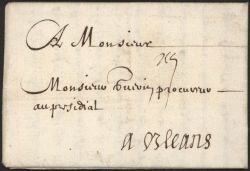 A Monsieur
Monsieur procureur
au presidial
a Orleans